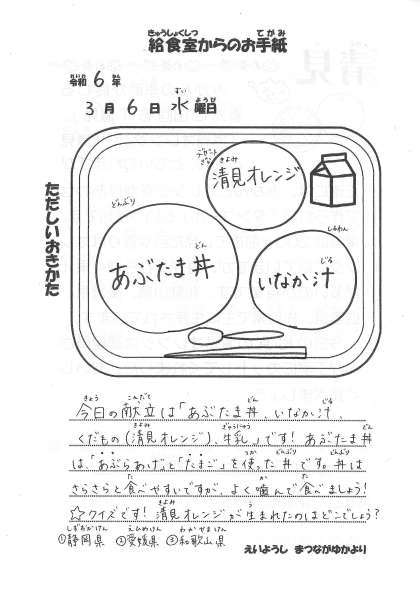 給食室からのお手紙
令和6年
3月6日水曜日
ただしいおきかた
デザートざら
清見オレンジ
どんぶり
あぶたま丼
しるわん
いなか汁
今日の献立は「あぶたま丼、いなか汁、
くだもの(清見オレンジ)、牛乳」です!あぶたま丼
は、「あぶらあげ」と「たまご」を使った丼です。丼は
さらさらと食べやすいですが、よく噛んで食べましょう!
☆クイズです!清見オレンジが生まれたのはどこでしょう?
①静岡県 ②愛媛県 ③和歌山県
えいようし まつながゆかより